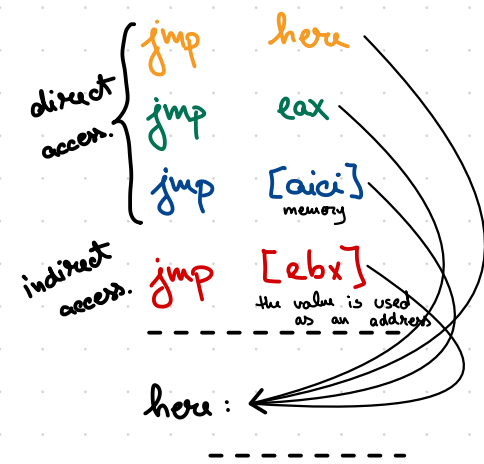 jmp here
direct access.
jmp eax
jmp [aici]
memory
indirect access.
jmp [ebx]
the value is used
as an address
here: